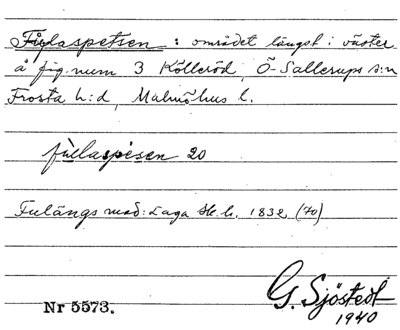 Fåglaspetsen : området längst i väster
å fig. num 3 Kölleröd, Ö-Sallerups s:n
Frosta h:d, Malmöhus l.
20
Fulängs mad: Laga Sk. h. 1832 (70)
G. Sjöstedt
1940
Nr 5573.